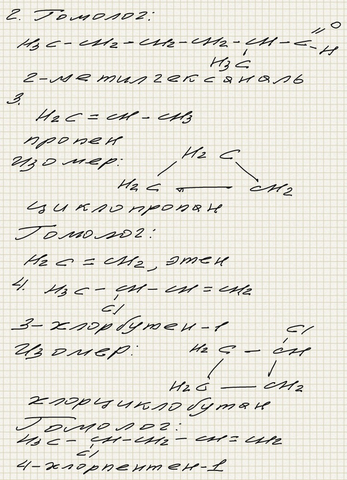 2. Гомолог:
H3C-CH2-CH2-CH2-CH-C=O
H
H3C
2-метилгексаналь
3.
H2C=CH-CH3
пропен
Изомер:
H2C
H2C — CH2
циклопропан
Гомолог:
H2C=CH2, этен
4. H3C-CH-CH=CH2
Cl
3-хлорбутен-1
Изомер:
Cl
H2C - CH
H2C — CH2
хлорциклобутан
Гомолог:
H3C-CH-CH2-CH=CH2
Cl
4-хлорпентен-1